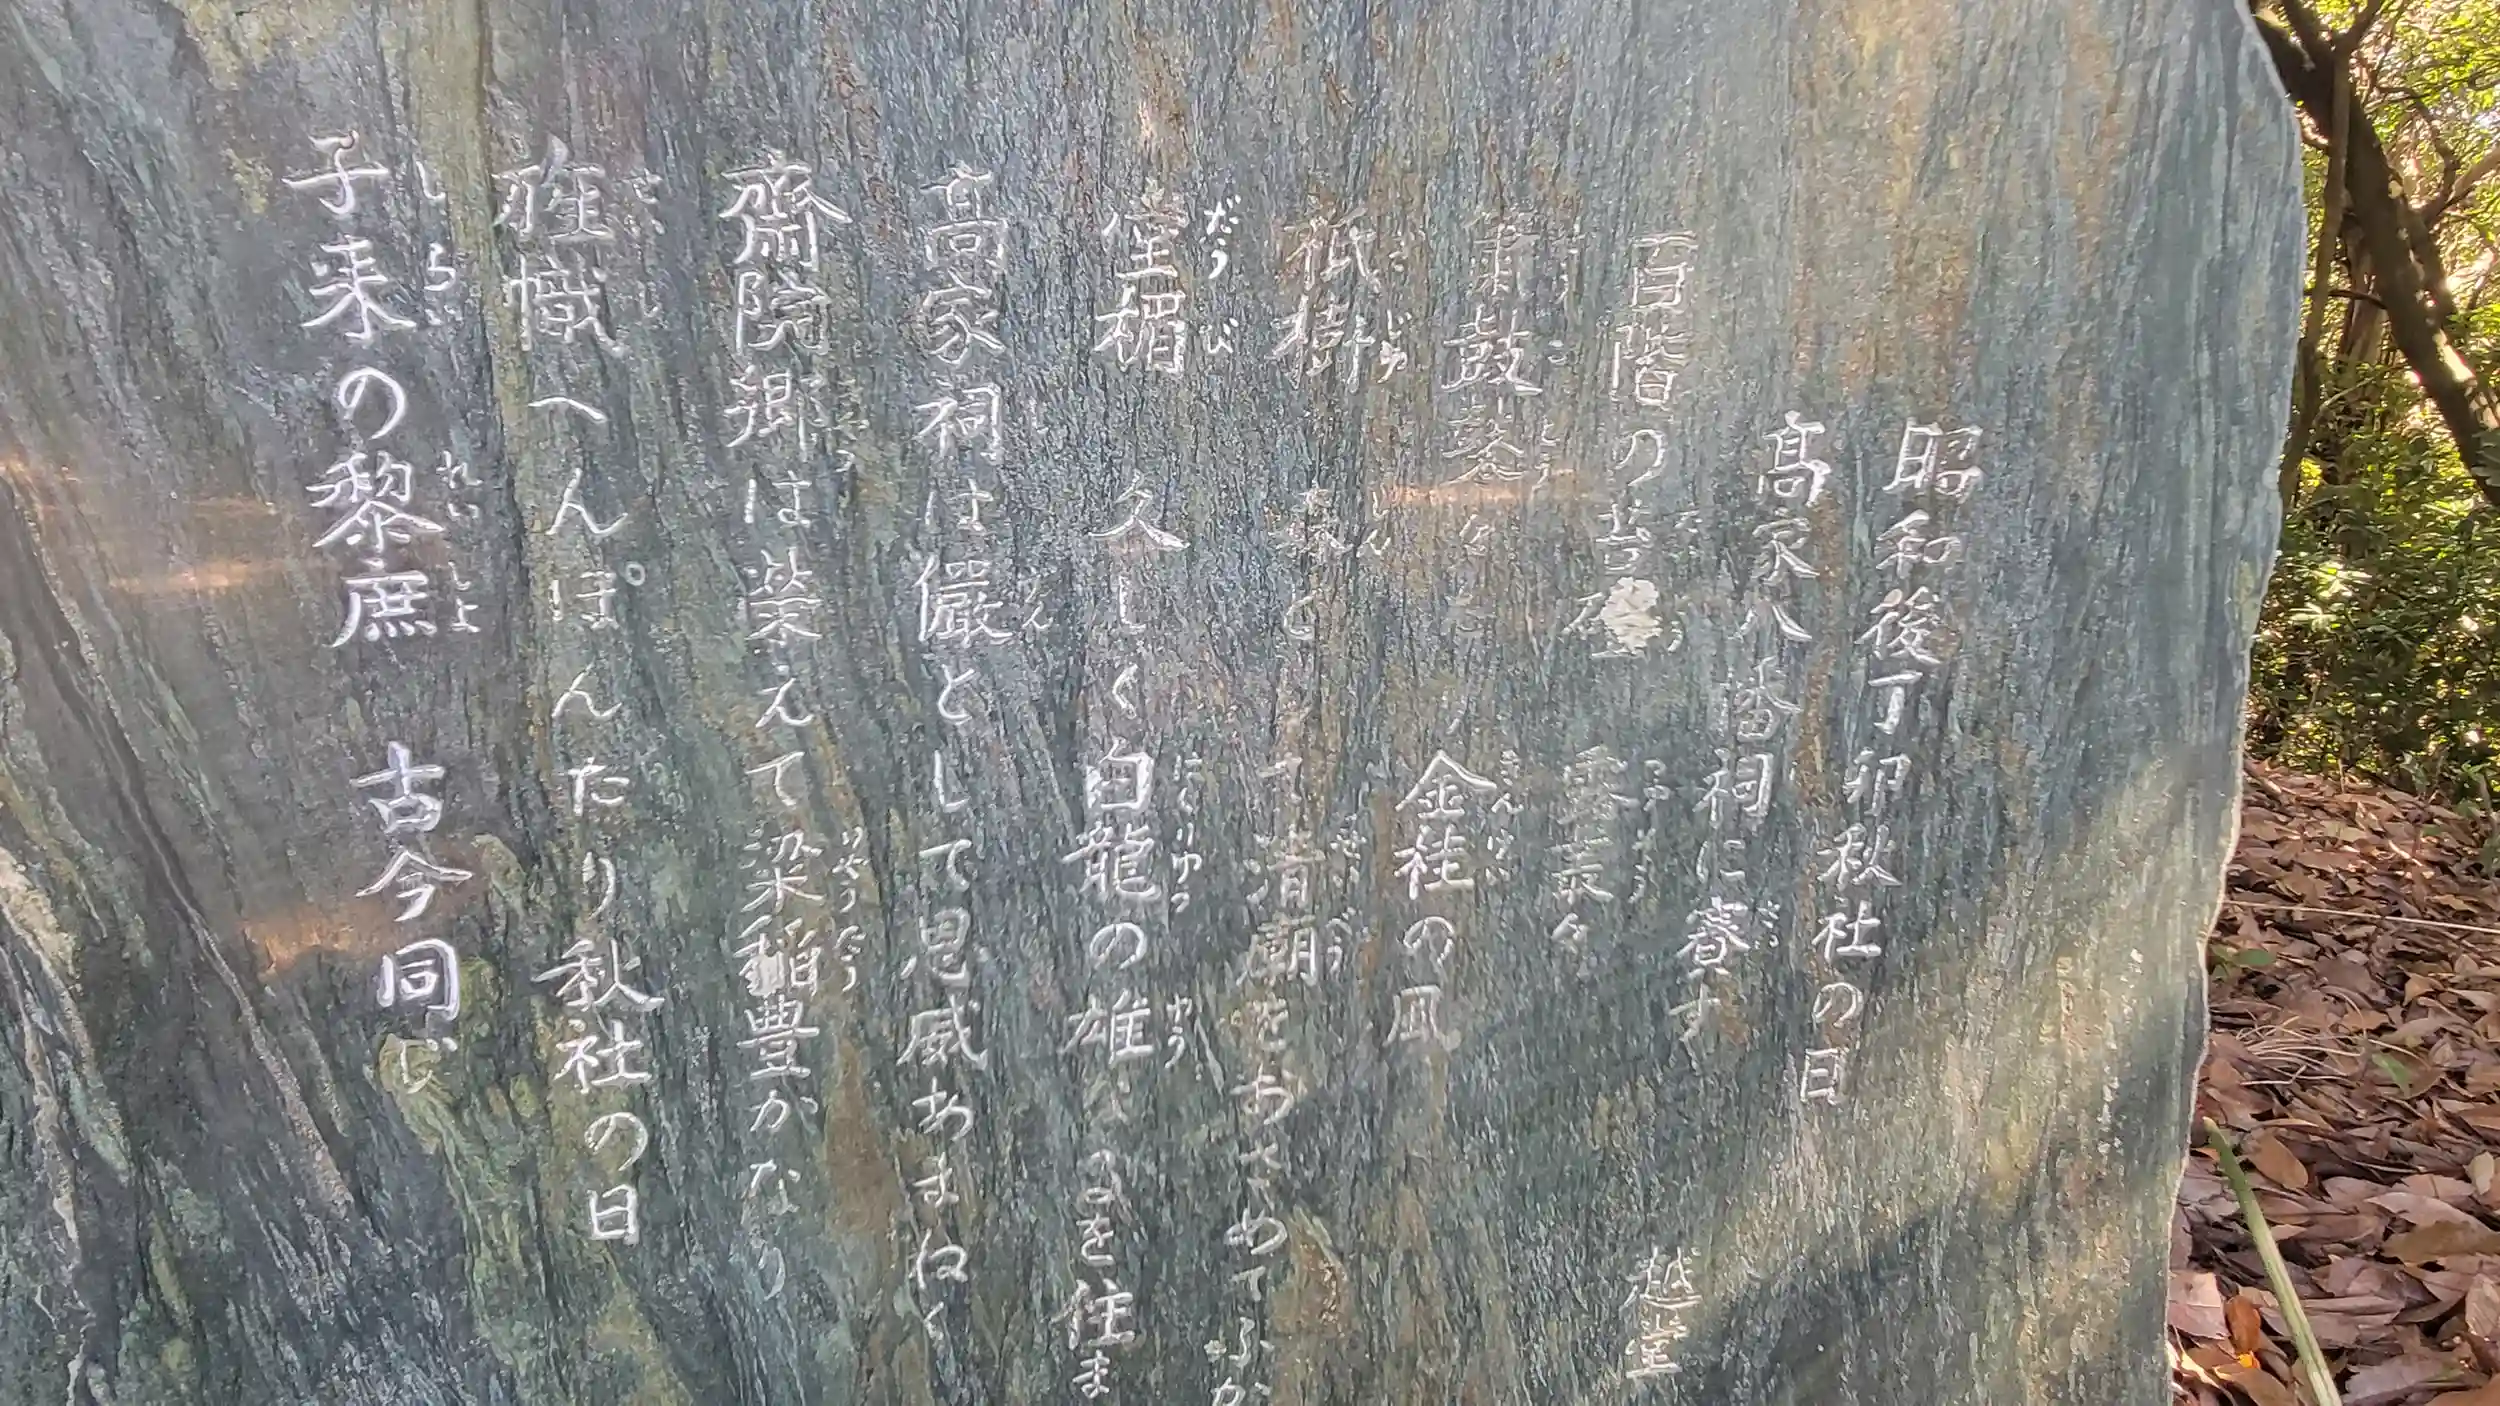 昭和後丁卯秋社の日
高家八番祠に賽す
越堂
百階の
粛鼓鼕々 金桂の風
祇樹 森として清廟をおさめてふか
窪楣 久しく白龍の雄なるを住ま
高家祠は儼として恩威あまねく
齋院郷は栄えて梁稲豊かなり
幟へんぽんたり秋社の日
子来の黎庶 古今同じ